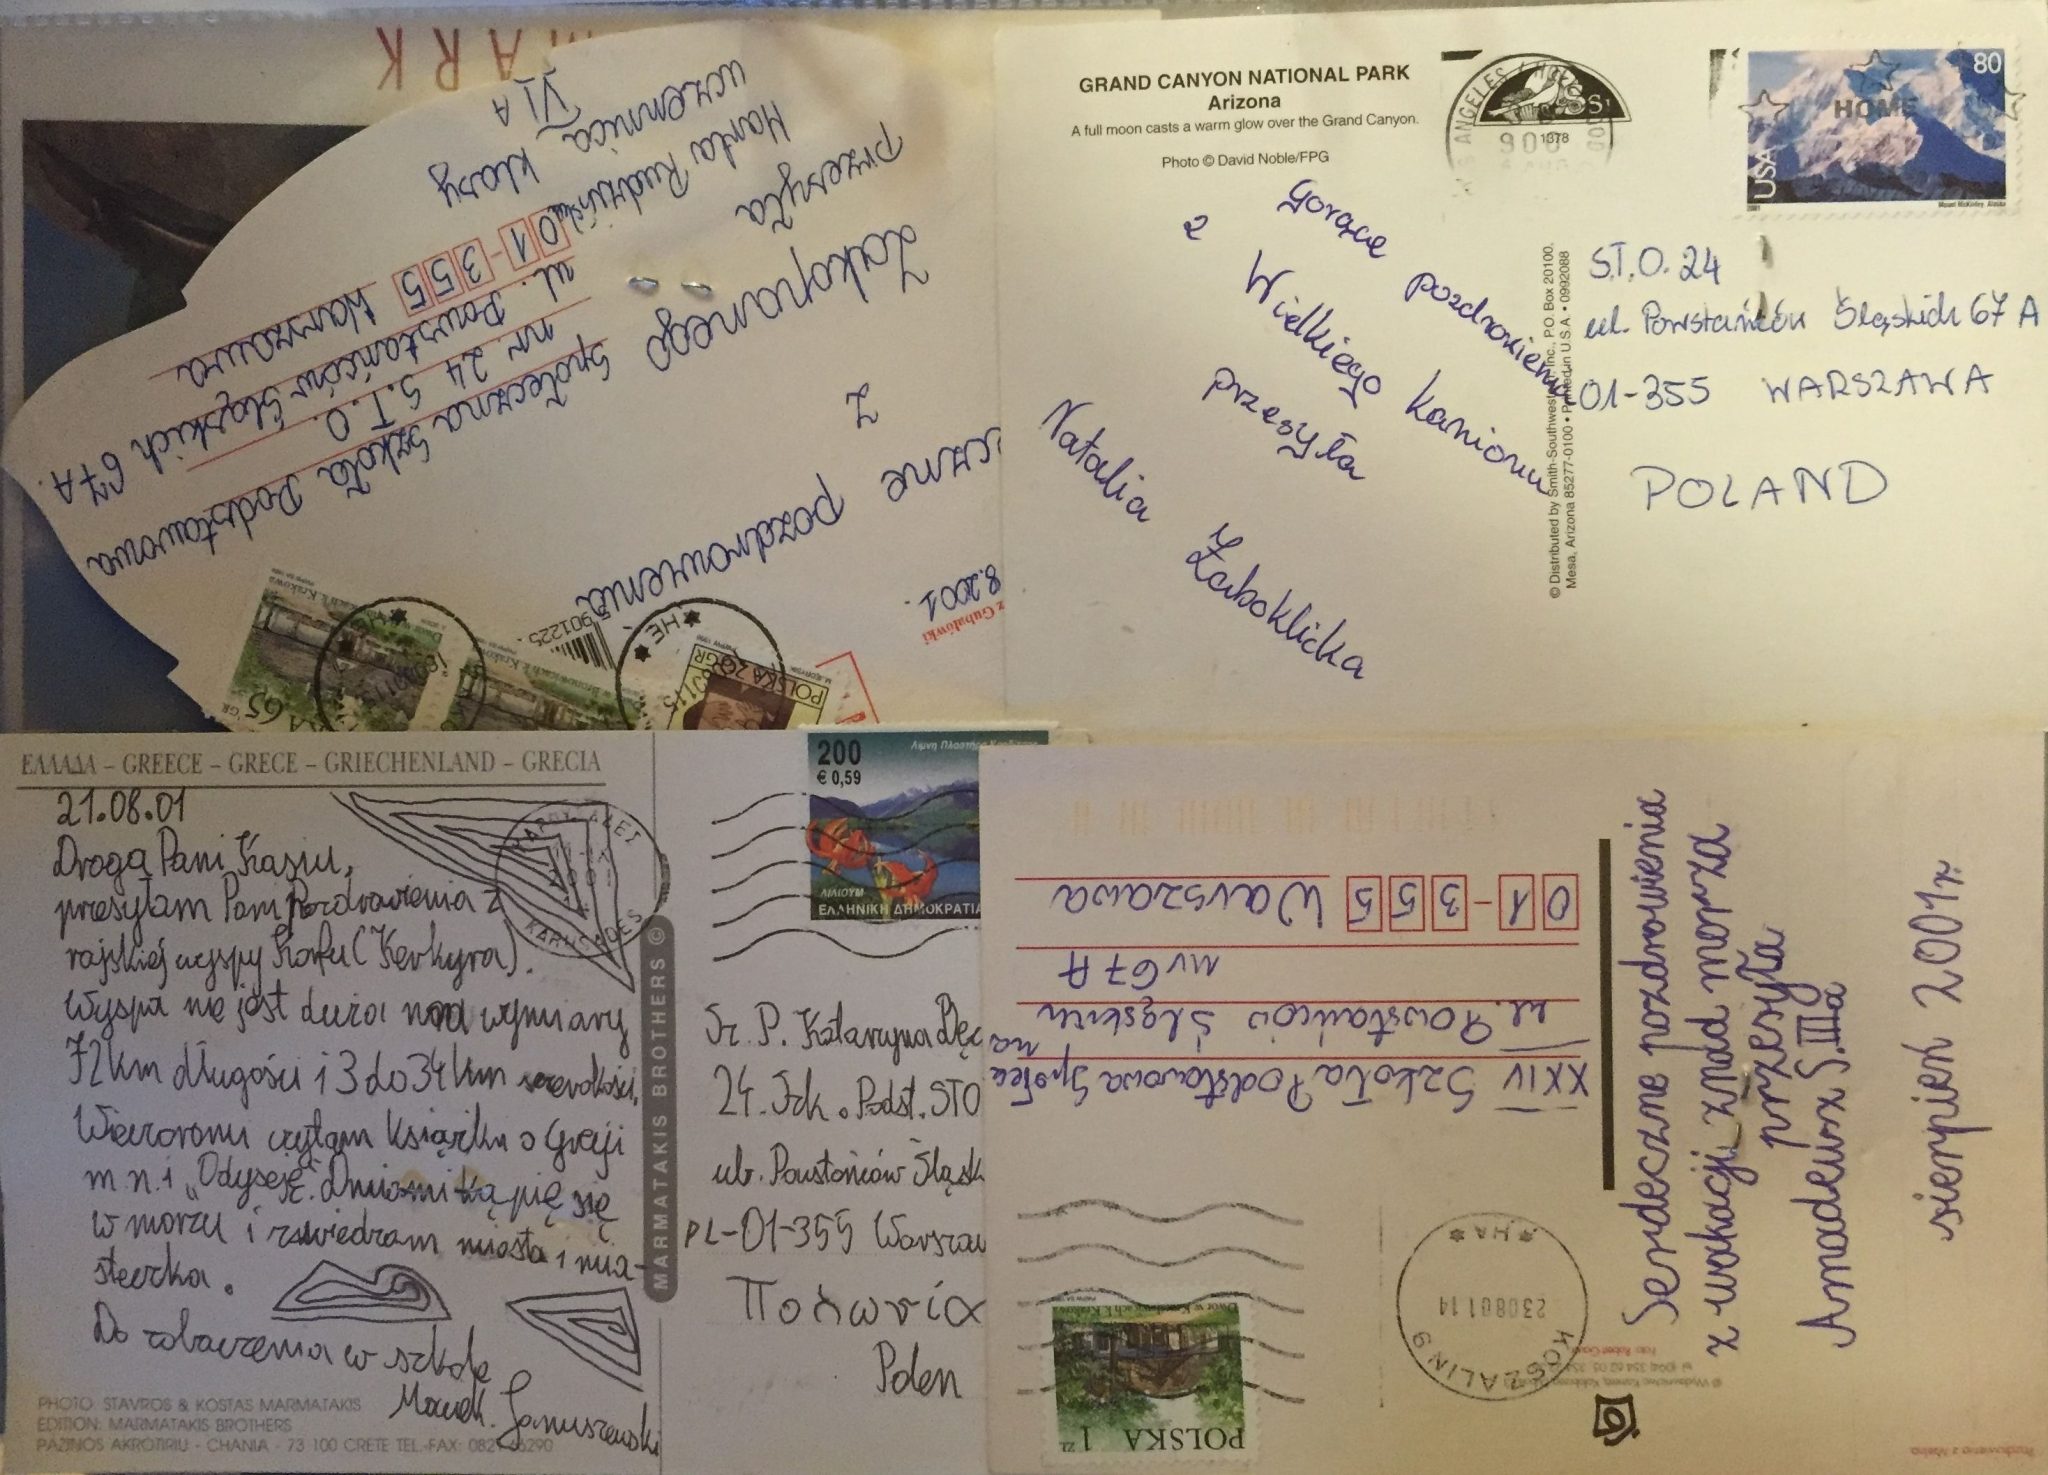 MARK
Serdeczne pozdrowienia
z
Zakopanego
przesyła
Marta Rudzińska
uczennica klasy
VI A
8.2001.
z Gubałówki
Społeczna Szkoła Podstawowa
nr. 24 S.T.O.
ul. Powstańców Śląskich 67A.
01-355 Warszawa
901225
POLSKA 20 GR
65 GR
GRAND CANYON NATIONAL PARK
Arizona
A full moon casts a warm glow over the Grand Canyon.
Photo © David Noble/FPG
1378
80
HOME
USA
2001
Mount McKinley, Alaska
Gorące pozdrowienia
z Wielkiego Kanionu
przesyła
Natalia Żaboklicka
© Distributed by Smith-Southwestern, Inc., P.O. Box 20100,
Mesa, Arizona 85277-0100 • Printed in U.S.A. • 0992088
S.T.O. 24
ul. Powstańców Śląskich 67 A
01-355 WARSZAWA
POLAND
ΕΛΛΑΔΑ – GREECE – GRECE – GRIECHENLAND – GRECIA
21.08.01
Droga Pani Kasiu,
przesyłam Pani Pozdrowienia z
rajskiej wyspy Korfu (Kerkyra).
Wyspa nie jest duża ma wymiary
72 km długości i 3 do 34 km szerokości.
Wieczorami czytam książki o Grecji
m.n.i „Odyseję". Dniami kąpię się
w morzu i zwiedzam miasta i mia-
steczka.
Do zobaczenia w szkole
Marek Januszewski
PHOTO: STAVROS & KOSTAS MARMATAKIS
EDITION: MARMATAKIS BROTHERS
PAZINOS AKROTIRIU - CHANIA - 73 100 CRETE TEL.-FAX: 0821 66290
MARMATAKIS BROTHERS ©
KARUSADES
200
€ 0,59
ΛΙΛΙΟΥΜ
ΕΛΛΗΝΙΚΗ ΔΗΜΟΚΡΑΤΙΑ
Sz. P. Katarzyna
24. Szk. Podst. STO
ul. Powstańców Śląsk
PL-01-355 Warszaw
Πολωνία
Polen
Serdeczne pozdrowienia
z wakacji znad morza
przesyła
Amadeusz S. IIIa
sierpień 2001r.
XXIV Szkoła Podstawowa Społecz
na
ul. Powstańców Śląskich
nr 67 A
01-355 Warszawa
KOSZALIN 9
230801.14
* HA *
POLSKA 1 ZŁ